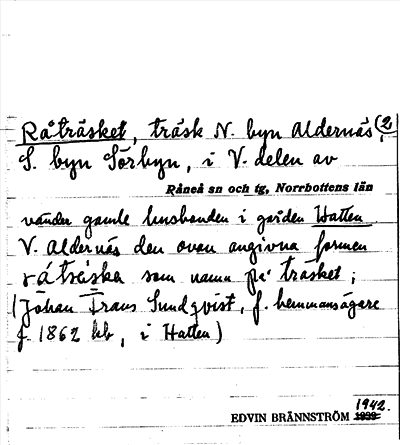 Råträsket, träsk N. byn Aldernäs, (2
S. byn Sörbyn, i V. delen av
Råneå sn och tg, Norrbottens län
vänder gamle husbonden i gården Hatten
V. Aldernäs den ovan angivna formen
råträsket som namn på träsket;
(Johan Frans Sundqvist, f. hemmansägare
f. 1862 hb, i Hatten)
1942.
EDVIN BRÄNNSTRÖM 1939